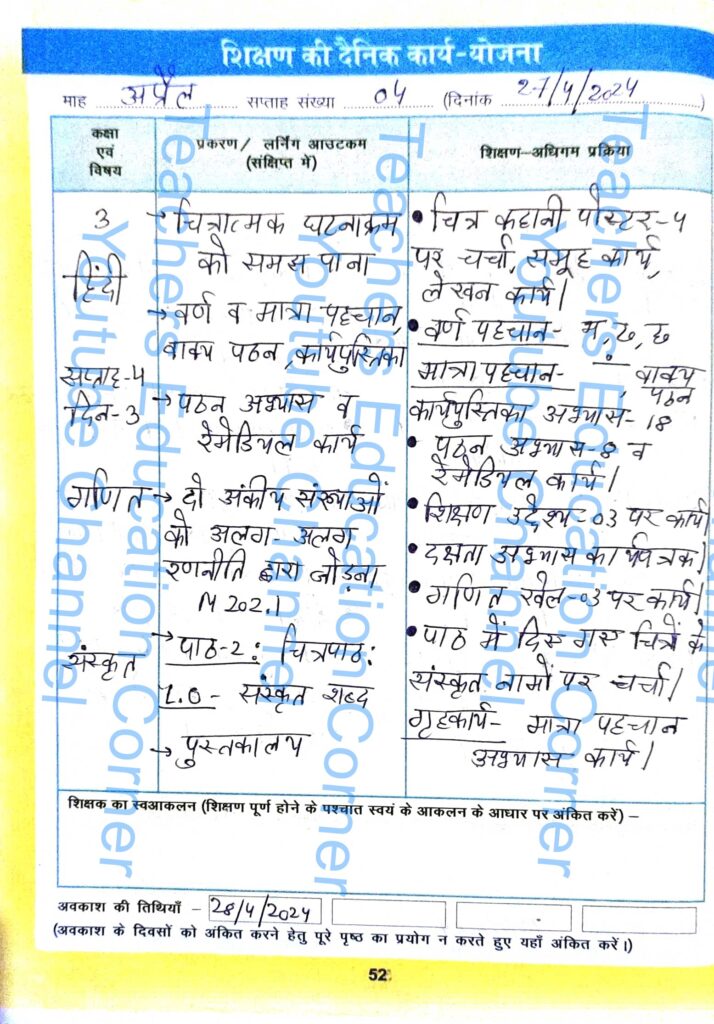 शिक्षण की दैनिक कार्य-योजना
माह अप्रैल सप्ताह संख्या 04 (दिनांक 27/4/2024)
कक्षा एवं विषय
प्रकरण/ लर्निंग आउटकम (संक्षिप्त में)
शिक्षण-अधिगम प्रक्रिया
3
हिंदी
सप्ताह-4
दिन-3
गणित
संस्कृत
→ चित्रात्मक घटनाक्रम
को समझ पाना
→ वर्ण व मात्रा पहचान,
वाक्य पठन, कार्यपुस्तिका
→ पठन अभ्यास व
रेमेडियल कार्य
→ दो अंकीय संख्याओं
को अलग-अलग
रणनीति द्वारा जोड़ना
M 202.1
→ पाठ-2: चित्रपाठ:
L.O - संस्कृत शब्द
→ पुस्तकालय
• चित्र कहानी पोस्टर-4
पर चर्चा, समूह कार्य,
लेखन कार्य।
• वर्ण पहचान- म,
मात्रा पहचान- वाक्य
पठन
कार्यपुस्तिका अभ्यास-18
• पठन अभ्यास-8 व
रेमेडियल कार्य।
• शिक्षण उद्देश्य-03 पर कार्य।
• दक्षता अभ्यास कार्यपत्रक।
• गणित खेल-03 पर कार्य।
• पाठ में दिए गए चित्रों के
संस्कृत नामों पर चर्चा।
गृहकार्य- मात्रा पहचान
अभ्यास कार्य।
शिक्षक का स्वआकलन (शिक्षण पूर्ण होने के पश्चात स्वयं के आकलन के आधार पर अंकित करें) –
अवकाश की तिथियाँ - 28/4/2024
(अवकाश के दिवसों को अंकित करने हेतु पूरे पृष्ठ का प्रयोग न करते हुए यहाँ अंकित करें।)
52
Teachers Education Corner
Youtube Channel
Teachers Education Corner
Youtube Channel
Teachers Education Corner
Youtube Channel